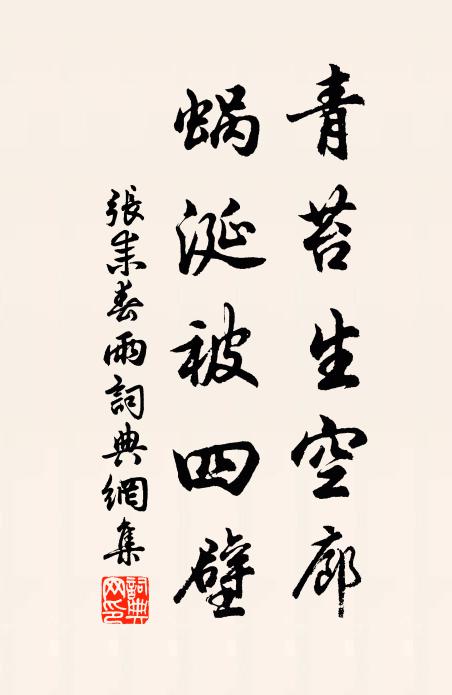 青苔生空廊
蝸涎被四壁
張耒春雨詞典網集
詞典网印